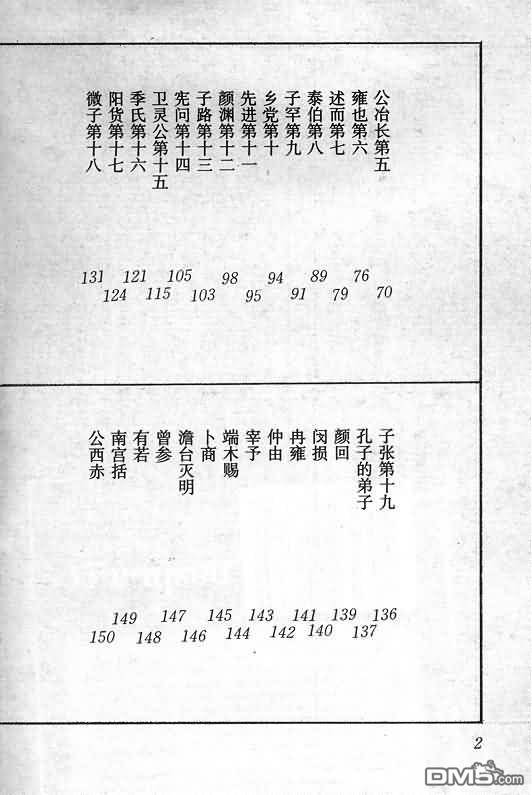 公冶长第五
雍也第六
述而第七
泰伯第八
子罕第九
乡党第十
先进第十一
颜渊第十二
子路第十三
宪问第十四
卫灵公第十五
季氏第十六
阳货第十七
微子第十八
70
76
79
89
91
94
95
98
103
105
115
121
124
131
子张第十九
孔子的弟子
颜回
闵损
冉雍
仲由
宰予
端木赐
卜商
澹台灭明
曾参
有若
南宫括
公西赤
136
137
139
140
141
142
143
144
145
146
147
148
149
150
2
DM5.com